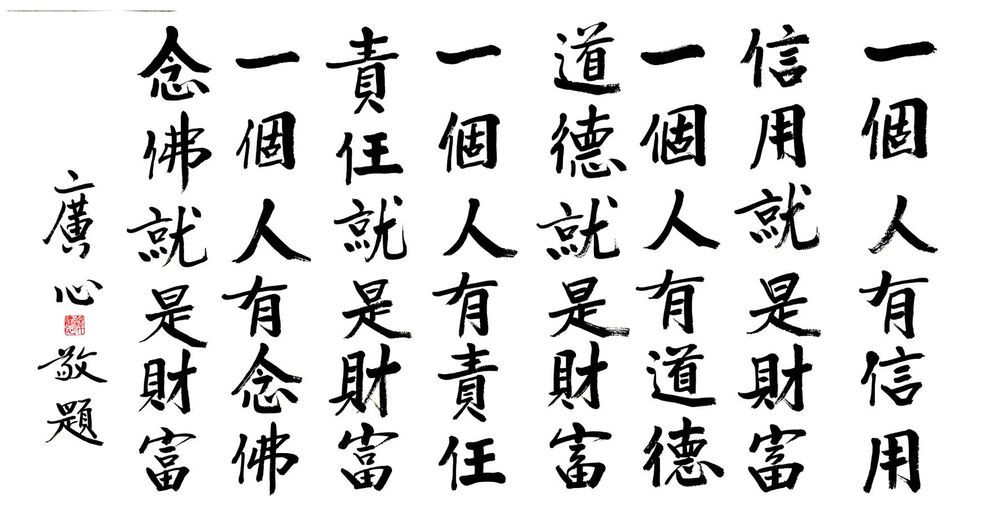 一個人有信用
信用就是財富
一個人有道德
道德就是財富
一個人有責任
責任就是財富
一個人有念佛
念佛就是財富
廣心敬題